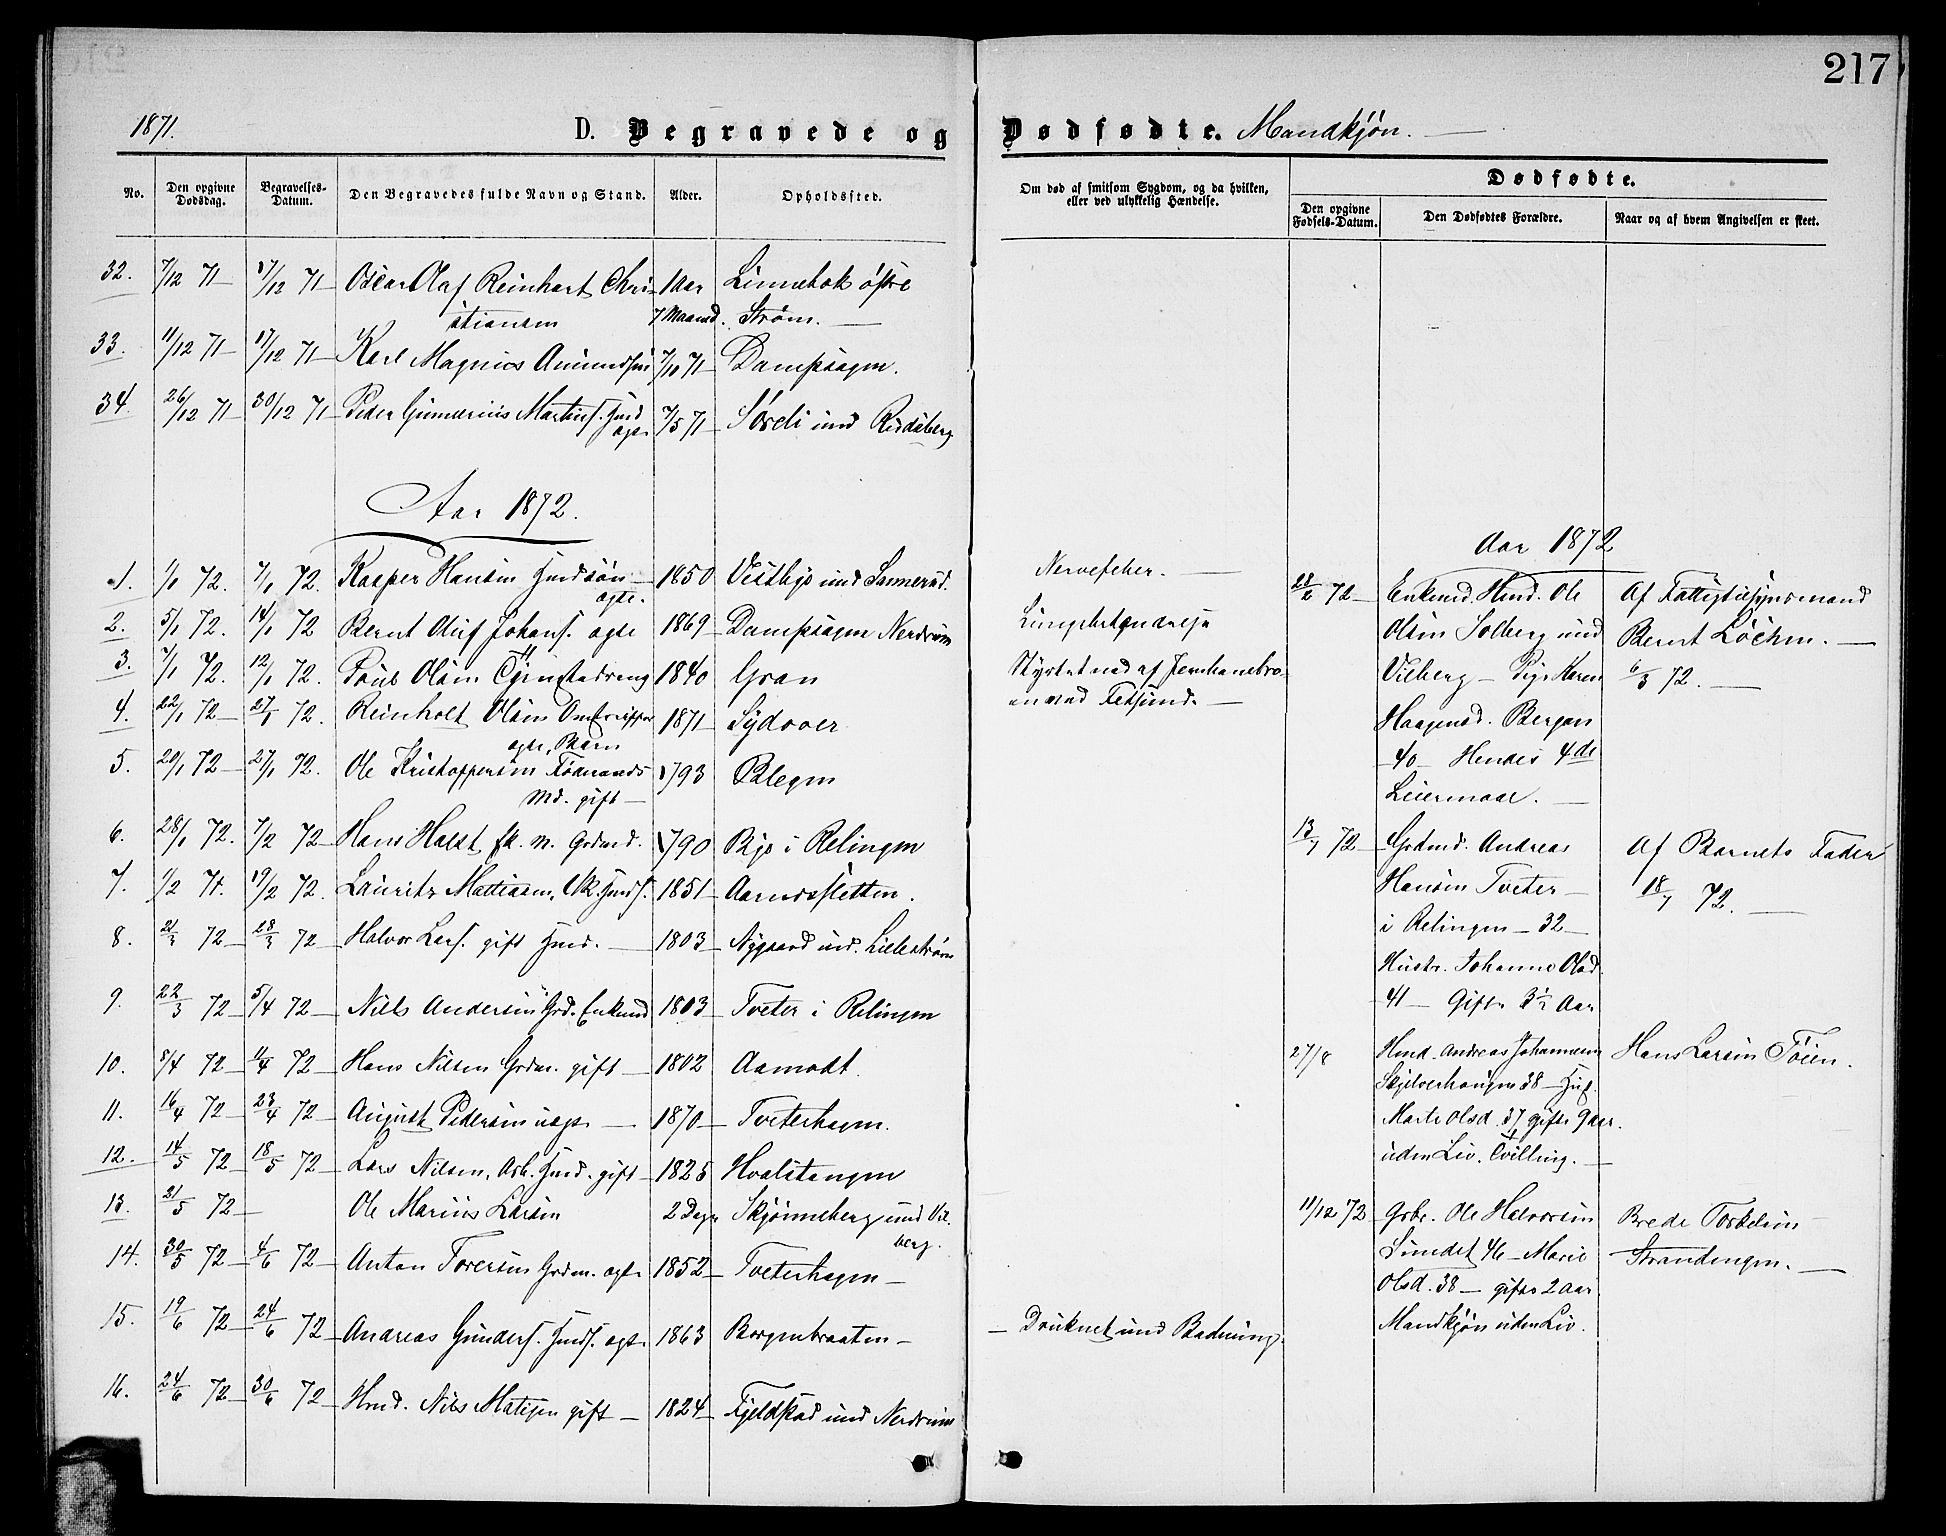 217
1871.
D. Begravede og Dødfødte. Mandkjøn.
No.
Den opgivne Dødsdag.
Begravelses-Datum.
Den Begravedes fulde Navn og Stand.
Alder.
Opholdssted.
Om død af smitsom Sygdom, og da hvilken, eller ved ulykkelig Hændelse.
Dødfødte.
Den opgivne Fødsels-Datum.
Den Dødfødtes Forældre.
Naar og af hvem Angivelsen er skeet.
32. 7/12 71 17/12 71 Oscar Olaf Reinhart Chri- 1 Aar Linnebok østre
stiansen 7 Maaned. Strøm.
33. 11/12 71 17/12 71 Karl Magnus Amundsen 7/10 71 Dampsagen.
34. 26/12 71 30/12 71 Peder Gunnerius Martins. Husd 7/5 71 Sørli und
agte
Aar 1872.
1. 1/1 72. 7/1 72. Kasper Hansen Husdsøn 1850 Vestbye und
agte.
2. 5/1 72. 14/1 72 Bernt Oluf Johans. agte 1869 Dampsagen Nerdrum
3. 7/1 72. 12/1 72. Poul Olsen Tjenstedreng 1840 Gran
4. 22/1 72 27/1 72. Reinholt Olsen 1871 Sydover
agte, Barn
5. 20/1 72 27/1 72. Ole Kristoffersen Føderaads 1793 Blegen
Md. gift
6. 28/1 72. 7/2 72 Hans Halst fh. m. Grdmd. 1790 Bye i Relingen
7. 1/2 7 19/2 72. Lauritz Mattiasen, Husds. 1851 Aarnesfletten.
8. 21/3 72 28/3 72 Halvor Lars. gift Husd. 1803 Nygaard und. Lillestrøm
9. 22/3 72 5/4 72 Niels Andersen Grd. Enkmd 1803 Tveter i Relingen
10. 5/4 72 11/4 72 Hans Nilsen Grdm. gift 1802 Aamodt.
11. 16/4 72 23/4 72 August Pedersen uagte 1870 Tveterhagen.
12. 14/5 72 18/5 72 Lars Nilsen, Arb. Husd. gift 1825 Hvalstangen
13. 31/5 72 Ole Marius Larsen 2 Dage Skjønneberg und Vil-
berg.
14. 30/5 72 4/6 72 Anton Toresen Grdm. agte 1852 Tveterhagen
15. 19/6 72 24/6 72 Andreas Gunders. Husds. agte 1863 Borgenbraaten
16. 24/6 72 30/6 72 Hmd. Nils Matisen gift 1824 Fjeldstad und Nerdrum
Nervefeber.
Lungebetændelse
Styrtet ned af Jernbanebro-
en ved Fetsund.
Druknet und Badning.
Aar 1872
28/2 72 Enkemd. Hmd. Ole
Olsen Solberg und
Vilberg – Pige Karen
Haagensd. Bergan
40 – Hendes 4de
Leiermaal.
Af Fattigtilsynsmand
Bernt Løchen.
6/3 72.
13/7 72 Grdmd. Andreas
Hansen Tveter
i Relingen – 32 –
Hustr. Johanne Olsd.
41 – Gifte 3½ Aar
Af Barnets Fader
18/7 72.
27/8 Hmd. Andreas Johannesen
Skjelverhaugen 38 – Hus.
Marte Olsd. 37 gifte 9 aar.
uden Liv. Tvilling.
Hans Larsen Tøien.
11/12 72 Grbr. Ole Halvorsen
Sundet 46 – Marie
Olsd. 38 – gifte 2 aar
Mandkjøn uden Liv.
Brede Torkelsen
Strandengen.